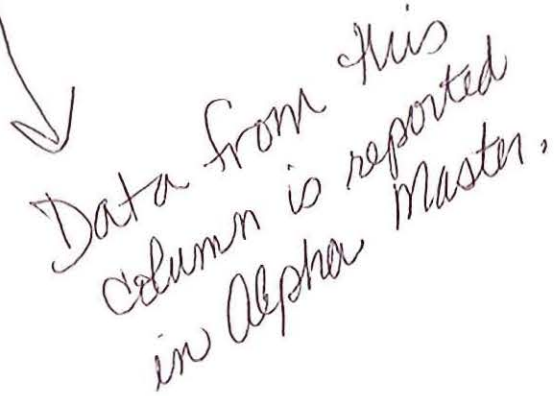 Data from this
column is reported
in Alpha Master.